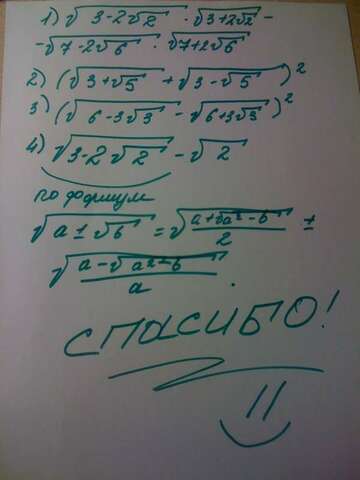 1) √(3-2√2) · √(3+2√2) -
- √(7-2√6) · √(7+2√6)
2) (√(3+√5) + √(3-√5))²
3) (√(6-3√3) - √(6+3√3))²
4) √(3-2√2) - √2
по формуи
√(a±√b) = √((a+√(a²-b))/2) ±
√((a-√(a²-b))/a).
СПАСИБО!